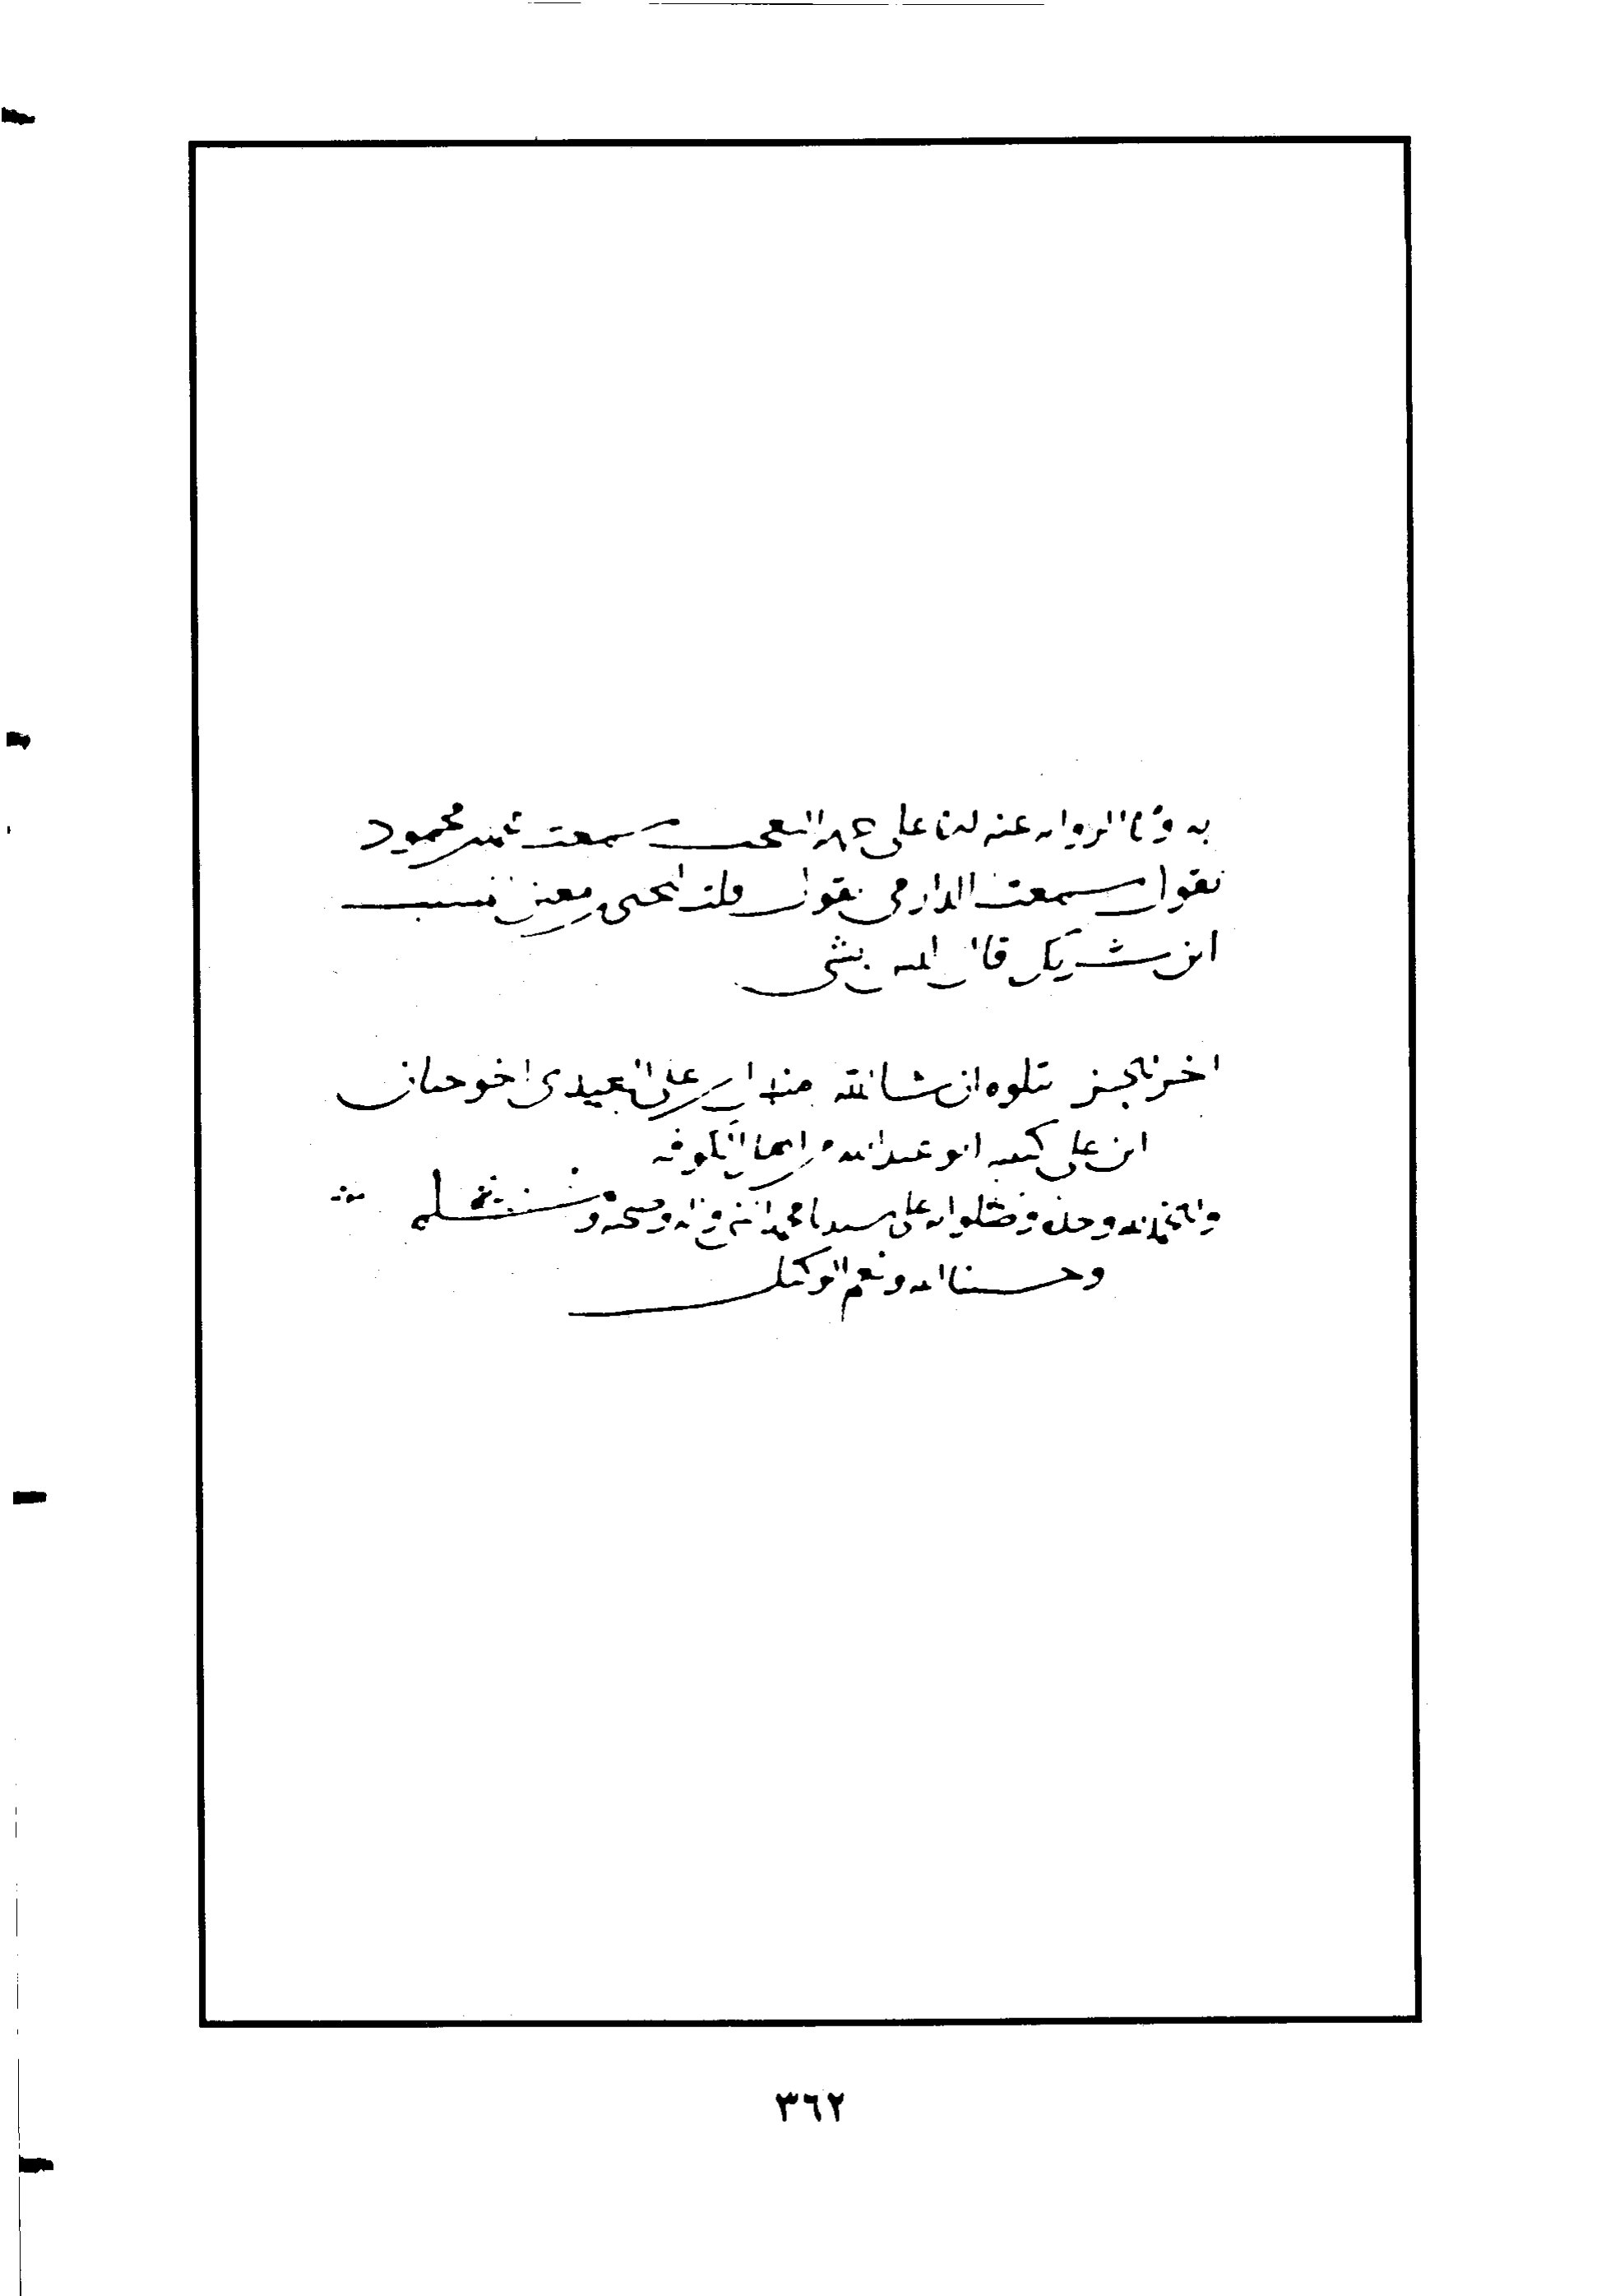 به وانا الروايه عنه لنا على جهه التعجب سمعت محمد بن محمود
يقول سمعت الدارمي يقول قلت ليحيى بن معين
ابن شريك قال ليس بشي
اخر الجز يتلوه ان شا الله مندل بن علي العبدي اخو حبان
ابن علي كنيته ابو عبد الله من اهل الكوفه
والحمد لله وحده وصلواته على سيدنا محمد النبي واله وصحبه وسلم
وحسبنا الله ونعم الوكيل
٣٦٢